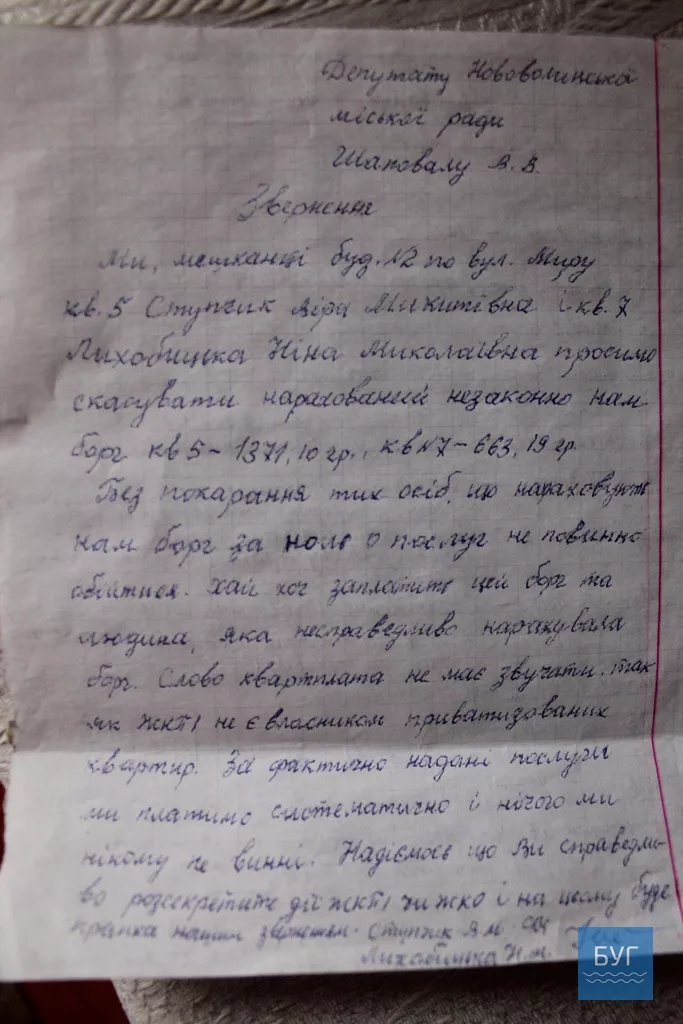 Депутату Нововолинської
міської ради
Шаповалу В.В.
Звернення
Ми, мешканці буд. №2 по вул. Миру
кв. 5 Ступчик Віра Микитівна і кв. 7
Лихобицька Ніна Миколаївна просимо
скасувати нарахований незаконно нам
борг кв 5 - 1371,10 гр., кв №7 - 663,19 гр.
Без покарання тих осіб, що нараховують
нам борг за ноль 0 послуг не повинно
обійтися. Хай хоч заплатить цей борг та
людина, яка несправедливо нарахувала
борг. Слово квартплата не має звучати. так
як ЖКП1 не є власником приватизованих
квартир. За фактично надані послуги
ми платимо систематично і нічого ми
нікому не винні. Надіємось що Ви справедли-
во розсекретите дії ЖКП1 чи ЖКО і на цьому буде
крапка нашим зверненням. Ступчик В.М.
Лихобицька Н.М.
БУГ